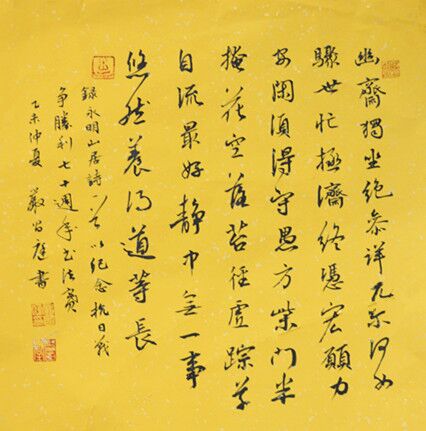 幽齋獨坐絶參詳兀尔何如
驟世忙拯濟終憑宏願力
安閑須得守愚方柴門半
掩花空落苔徑虛踪草
自流最好静中無一事
悠然養得道等長
錄永明山居詩一首以紀念抗日戰
争勝利七十週年書法賽
乙未仲夏 嚴 庭書